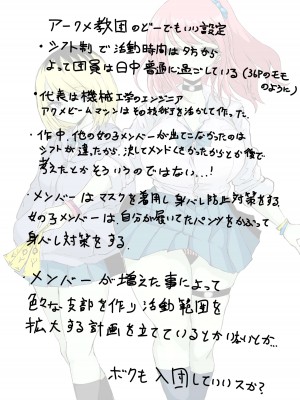 アークメ教団のどーでもいい設定
・シフト制で活動時間は夕方から
よって団員は日中普通に過ごしている(36Pのモモ
のように)
・代表は機械工学のエンジニア
アクメビームマシンはその技術を活かして作った.
・作中、他の女の子メンバーが出てこなかったのは
シフトが違ったから、決してメンドくさかったからとか後で
考えたとかそういうのではない...!
・メンバーはマスクを着用し身バレ防止対策をする.
女の子メンバーは自分が履いてたパンツをかぶって
身バレ対策をする.
・メンバーが増えた事によって
色々な支部を作り活動範囲を
拡大する計画を立てているとかいないとか...
ボクも入団していいスか?